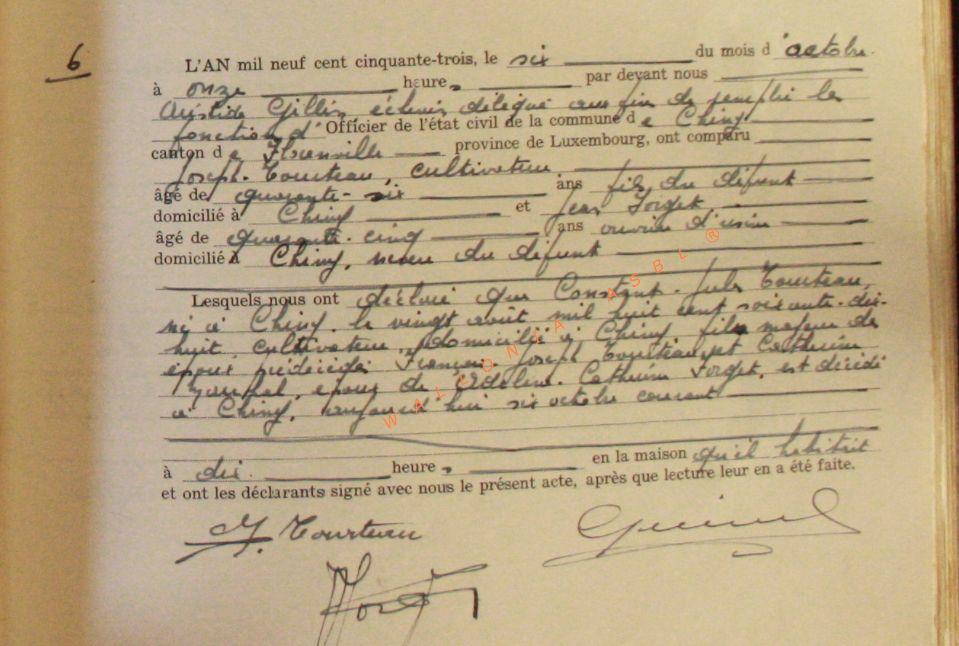 6
L'AN mil neuf cent cinquante-trois, le six du mois d'octobre
à onze heures, par devant nous
Aristide Gillin, échevin délégué aux fin de remplir les
fonction d'Officier de l'état civil de la commune de Chiny
canton de Florenville province de Luxembourg, ont comparu
Joseph Tourteau, cultivateur,
âgé de quarante-six ans fils du défunt
domicilié à Chiny et Jean Forget
âgé de quarante-cinq ans ouvrier d'usine
domicilié à Chiny, neveu du défunt
Lesquels nous ont déclaré que Constant-Jules Tourteau,
né à Chiny, le vingt août mil huit cent soixante-dix-
huit, cultivateur, domicilié à Chiny, fils majeur de
époux prédécédés François-Joseph Tourteau et Catherine
époux de Adeline-Catherine Forget, est décédé
à Chiny, aujourd'hui six octobre courant
à dix heures, en la maison qu'il habitait
et ont les déclarants signé avec nous le présent acte, après que lecture leur en a été faite.
J. Tourteau
Forget
WALLONIA ASBL ®